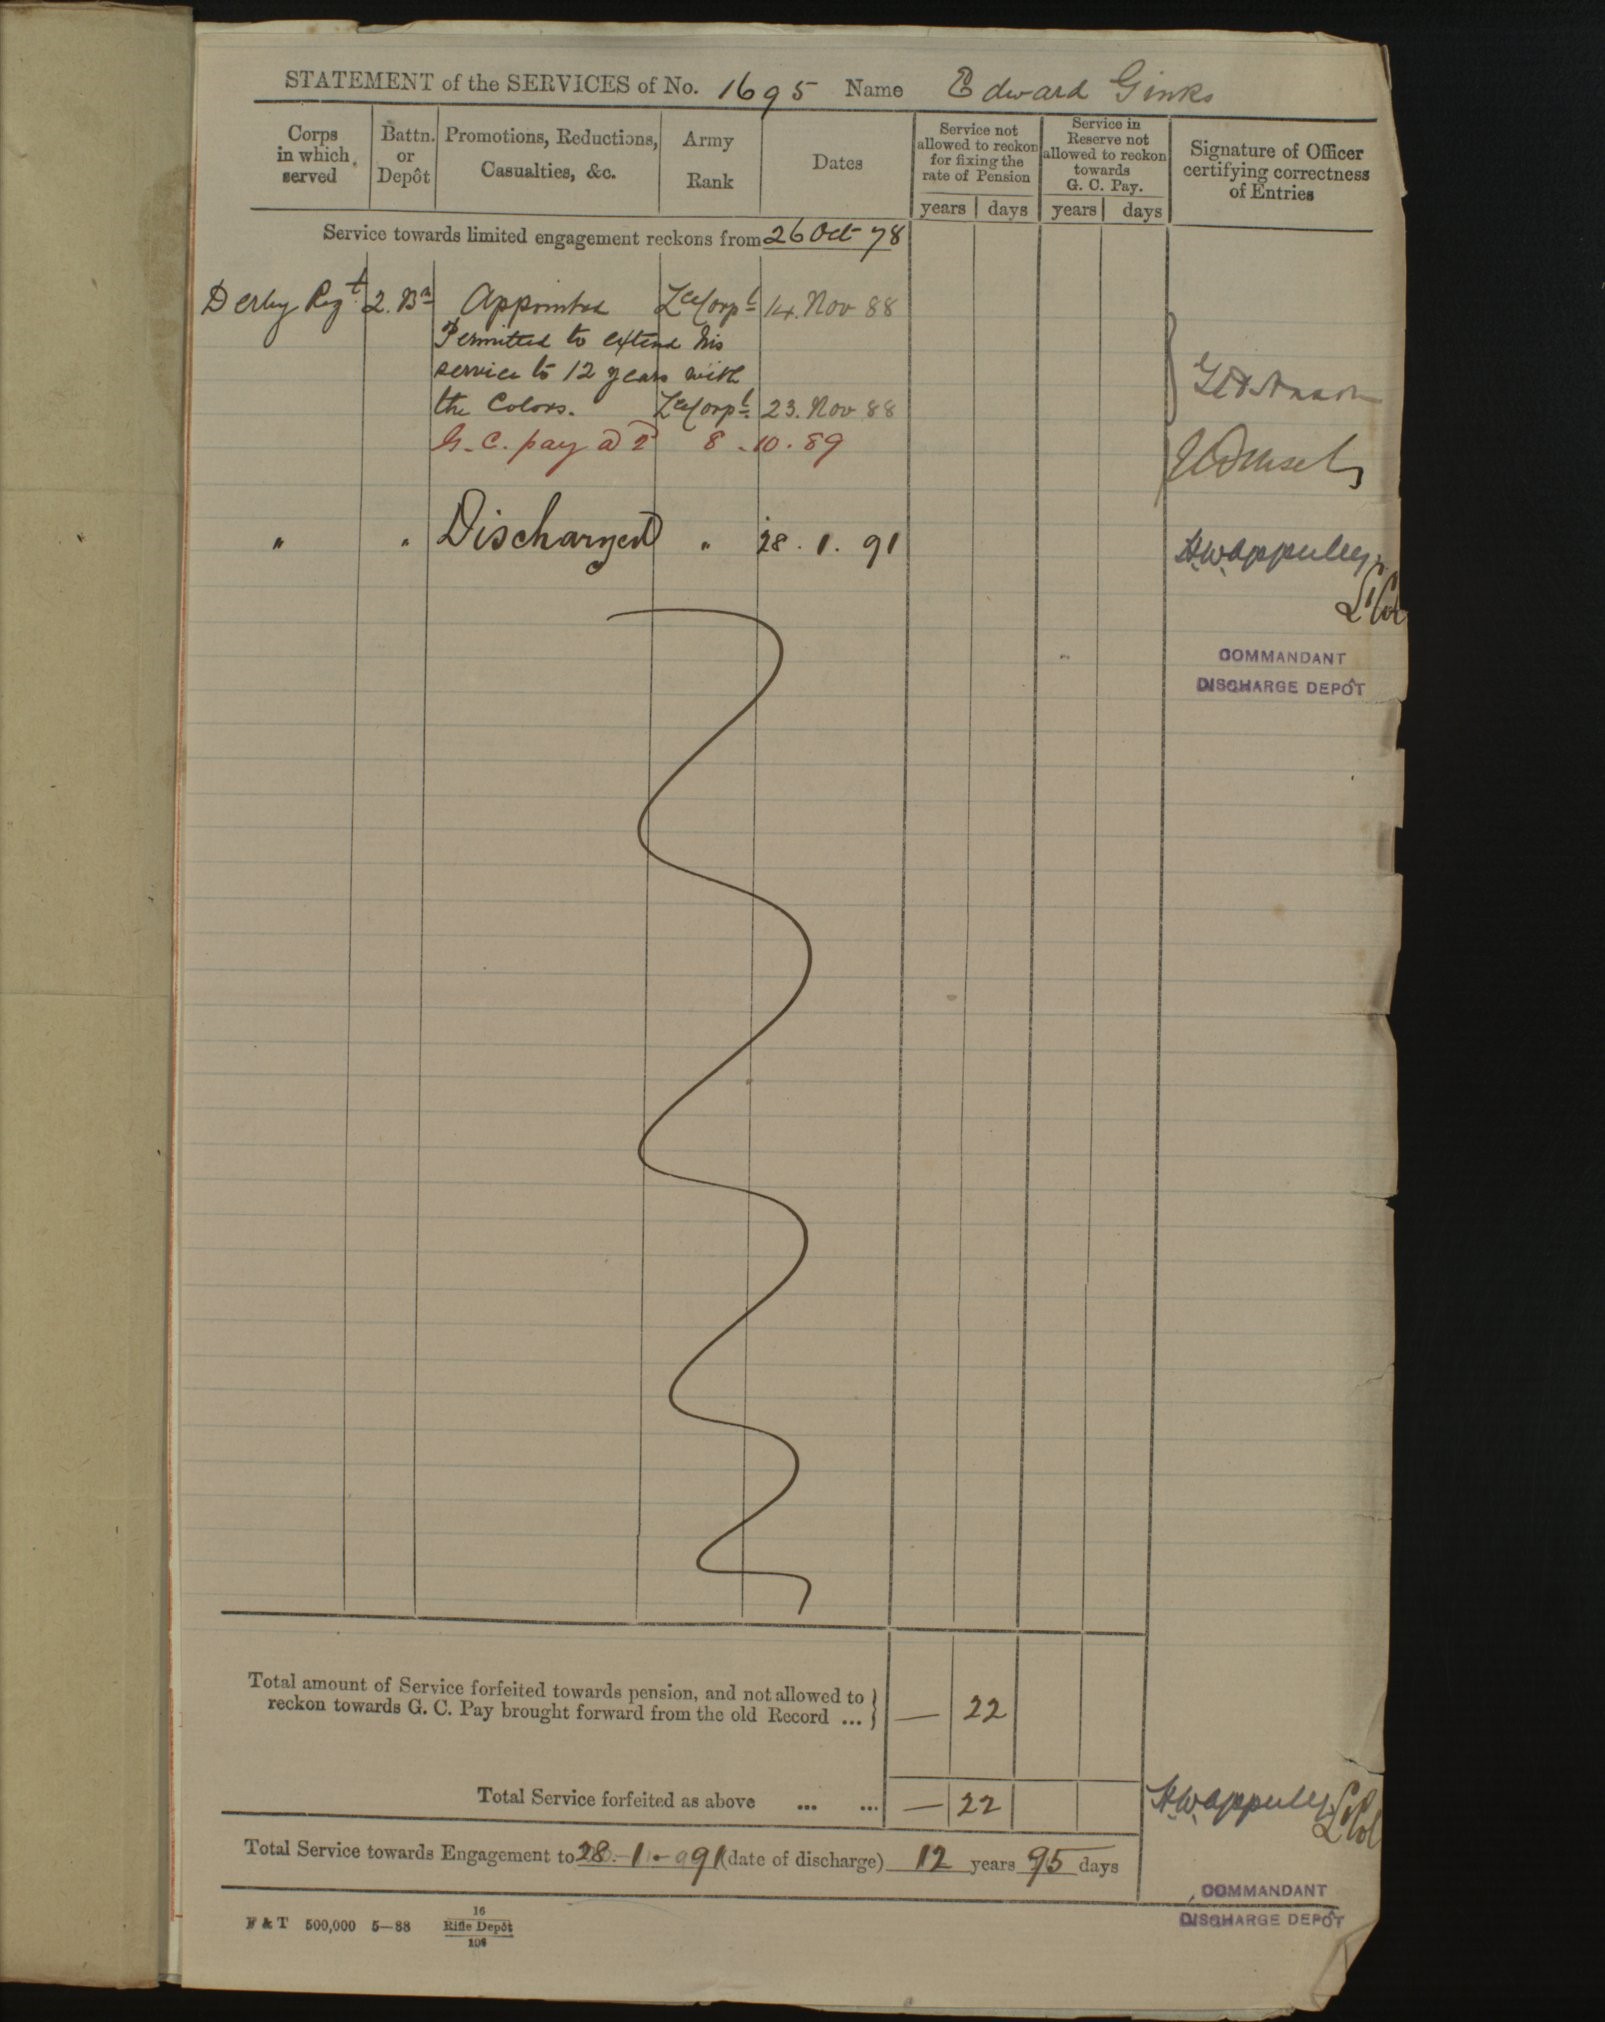 STATEMENT of the SERVICES of No. 1695 Name Edward Ginks
Corps in which served
Battn. or Depôt
Promotions, Reductions, Casualties, &c.
Army Rank
Dates
Service not allowed to reckon for fixing the rate of Pension
years days
Service in Reserve not allowed to reckon towards G. C. Pay.
years days
Signature of Officer certifying correctness of Entries
Service towards limited engagement reckons from 26 Oct 78
Derby Regt 2. Bn Appointed Lce Corpl 14. Nov 88
Permitted to extend his
service to 12 years with
the Colors. Lce Corpl 23. Nov 88
G. C. pay @ 2d 8. 10. 89
" " Discharged " 28. 1. 91
Lt Col
COMMANDANT
DISCHARGE DEPÔT
Total amount of Service forfeited towards pension, and not allowed to
reckon towards G. C. Pay brought forward from the old Record ... } — 22
Total Service forfeited as above ... ... — 22
Lt Col
Total Service towards Engagement to 28. 1. 91 (date of discharge) 12 years 95 days
COMMANDANT
DISCHARGE DEPÔT
F & T 500,000 5—88 16 Rifle Depôt